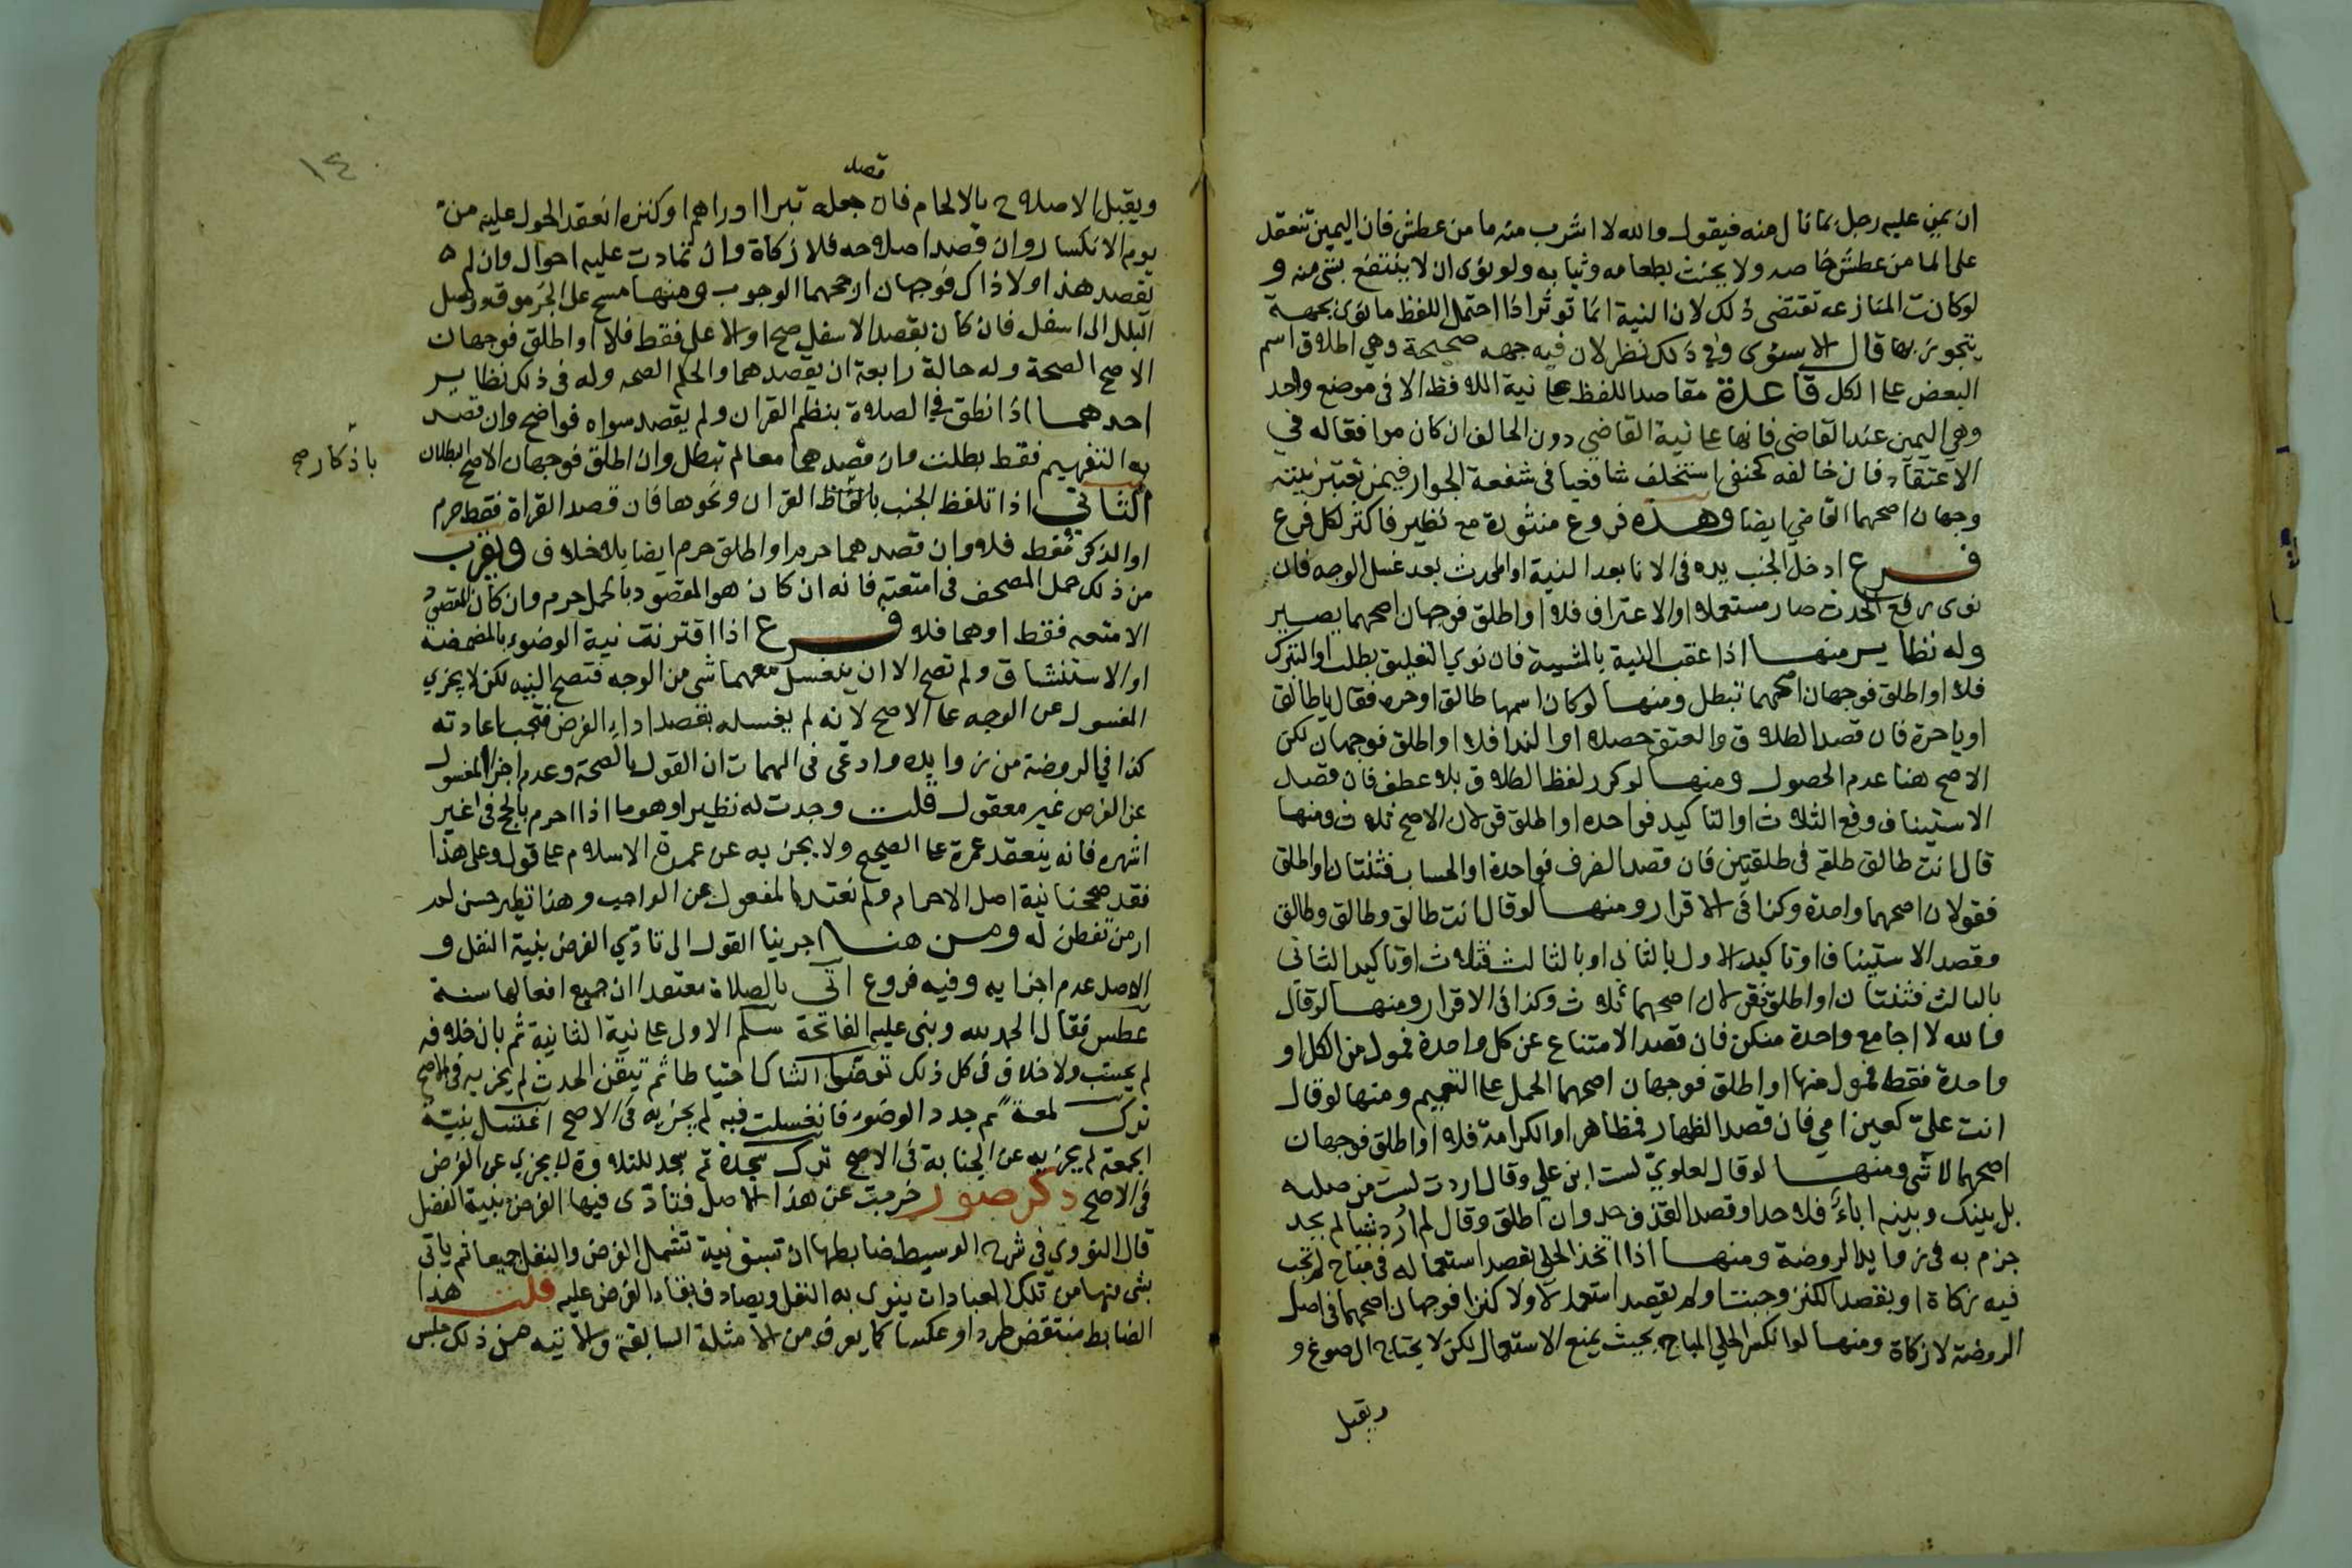 ان يمن عليه رجل بما نال منه فيقول والله لا اشرب منه ما من عطش فان اليمين تنعقد
على الما من عطش خاصه ولا يحنث بطعامه وثيابه ولو نوى ان لا ينتفع بشى منه و
لو كانت المنازعه تقتضى ذلك لان النية انما توثر اذا احتمل اللفظ ما نوى بجهة
يتجوز بها قال الاسنوى وفي ذلك نظر لان فيه جهه صحيحة وهي اطلاق اسم
البعض على الكل قاعدة مقاصد اللفظ على نية اللافظ الا فى موضع واحد
وهي اليمين عند القاضي فانها على نية القاضي دون الحالف ان كان موافقا له في
الاعتقاد فان خالفه كحنفي استحلف شافعيا فى شفعة الجوار فيمن تعتبر نيته
وجهان اصحهما القاضي ايضا وهذه فروع منثورة مع نظير فاكثر لكل فرع
فرع ادخل الجنب يده فى الانا بعد النية او المحدث بعد غسل الوجه فان
نوى رفع الحدث صار مستعملا او الاغتراف فلا او اطلق فوجهان اصحهما يصير
وله نظاير منها اذا عقب النية بالمشيية فان نوي التعليق بطلت او التبرك
فلا او اطلق فوجهان اصحهما تبطل ومنها لو كان اسمها طالق او حره فقال يا طالق
او يا حرة فان قصد الطلاق والعتق حصلا او الندا فلا او اطلق فوجهان لكن
الاصح هنا عدم الحصول ومنها لو كرر لفظ الطلاق بلا عطف فان قصد
الاستيناف وقع الثلاث او التاكيد فواحده او اطلق قولان الاصح ثلاث ومنها
قال انت طالق طلقه فى طلقتين فان قصد الظرف فواحدة او الحساب فثنتان او اطلق
فقولان اصحهما واحدة وكذا فى الاقرار ومنها لو قال انت طالق وطالق وطالق
وقصد الاستيناف او تاكيد الاول بالثانى او بالثالث فثلاث او تاكيد الثانى
بالثالث فثنتان او اطلق فقولان اصحهما ثلاث وكذا فى الاقرار ومنها لو قال
والله لا اجامع واحدة منكن فان قصد الامتناع عن كل واحدة فمول من الكل او
واحدة فقط فمول منها او اطلق فوجهان اصحهما الحمل على التعميم ومنها لو قال
انت عليّ كعين امي فان قصد الظهار فمظاهر او الكرامة فلا او اطلق فوجهان
اصحهما لا شى ومنها لو قال لعلويّ لست ابن علي وقال اردت لست من صلبه
بل بينك وبينه اباء فلا حد او قصد القذف حد وان اطلق وقال لم ارد شيا لم يحد
جزم به فى زوايد الروضة ومنها اذا اتخذ الحلى بقصد استعماله فى مباح لم تجب
فيه زكاة او بقصد الكنز وجبت او لم يقصد استعمالا ولا كنزا فوجهان اصحهما فى اصل
الروضة لا زكاة ومنها لو انكسر الحلي المباح بحيث يمنع الاستعمال لكن لا يحتاج الى صوغ و
ويقبل
١٤
قصد
ويقبل الاصلاح بالالحام فان جعله تبرا او دراهم او كنزه انعقد الحول عليه من
يوم الانكسار وان قصد اصلاحه فلا زكاة وان تمادت عليه احوال وان لم
يقصد هذا ولا ذاك فوجهان ارجحهما الوجوب ومنها مسح على الجرموق ووصل
البلل الى اسفل فان كان بقصد الاسفل صح او الاعلى فقط فلا او اطلق فوجهان
الاصح الصحة وله حالة رابعة ان يقصدهما والحكم الصحه وله فى ذلك نظاير
احدهما اذا نطق في الصلاة بنظم القران ولم يقصد سواه فواضح وان قصد
به التفهيم فقط بطلت وان قصدهما معا لم تبطل وان اطلق فوجهان الاصح البطلان
باذكار صح
الثاني اذا تلفظ الجنب بالفاظ القران ونحوها فان قصد القراة فقط حرم
او الذكر فقط فلا وان قصدهما حرم او اطلق حرم ايضا بلا خلاف ويقرب
من ذلك حمل المصحف فى امتعة فانه ان كان هو المقصود بالحمل حرم وان كان المقصود
الامتعه فقط او هما فلا فرع اذا اقترنت نية الوضوء بالمضمضة
او الاستنشاق ولم تصح الا ان ينغسل معهما شى من الوجه فتصح النيه لكن لا يجزي
المغسول عن الوجه على الاصح لانه لم يغسله بقصد اداء الفرض فتجب اعادته
كذا في الروضة من زوايده وادعى فى المهمات ان القول بالصحة وعدم اجزا المغسول
عن الفرض غير معقول قلت وجدت له نظيرا وهو ما اذا احرم بالحج فى غير
اشهره فانه ينعقد عمرة على الصحيح ولا يجزيه عن عمرة الاسلام على قول وعلى هذا
فقد صححنا نية اصل الاحرام ولم نعتد بالمفعول عن الواجب وهذا نظير حسن لم
ار من تفطن له ومن هنا اجرينا القول الى تادّي الفرض بنية النفل و
الاصل عدم اجزايه وفيه فروع اتى بالصلاة معتقدا ان جميع افعالها سنة
عطس فقال الحمد لله وبنى عليه الفاتحة سلم الاولى على نية الثانية ثم بان خلافه
لم يحسب ولا خلاف فى كل ذلك توضا الشاك احتياطا ثم تيقن الحدث لم يجزيه فى الاصح
ترك لمعة ثم جدد الوضوء فانغسلت فيه لم يجزيه فى الاصح اغتسل بنية
الجمعة لم يجزيه عن الجنابة فى الاصح ترك سجدة ثم سجد للتلاوة لا يجزي عن الفرض
فى الاصح ذكر صور خرجت عن هذا الاصل فتادّى فيها الفرض بنية النفل
قال النووي فى شرح الوسيط ضابطها ان تسبق نية تشمل الفرض والنفل جميعا ثم ياتى
بشى منها من تلك العبادات ينوى به النفل ويصادف بقاء الفرض عليه قلت هذا
الضابط منتقض طردا وعكسا كما يعرف من الامثلة السابقة والاتيه فمن ذلك جلس